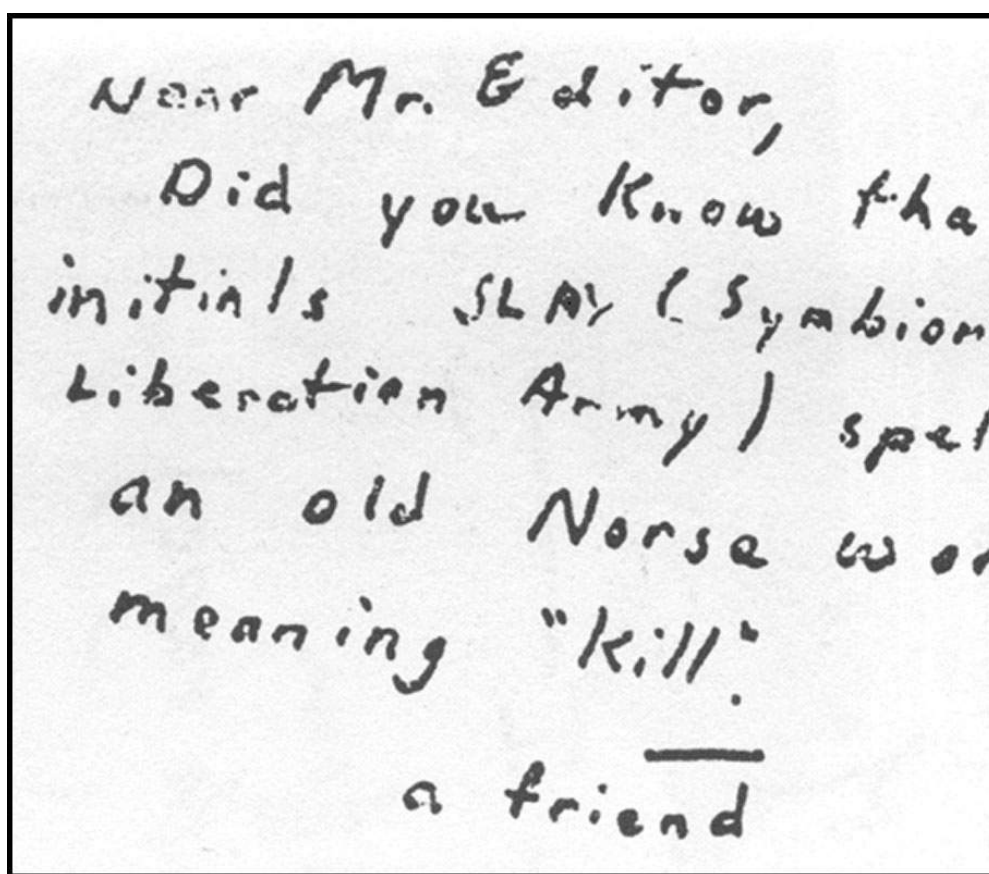 Dear Mr. Editor,
Did you Know tha
initials SLAY ( Symbion
Liberation Army ) spel
an old Norse wor
meaning "kill".
a friend